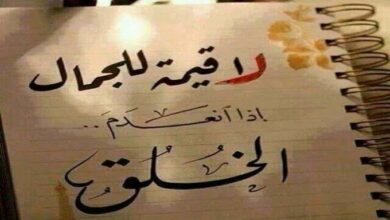 لا قيمة للجمال
إذا انعدمَ ..
الخُلُق